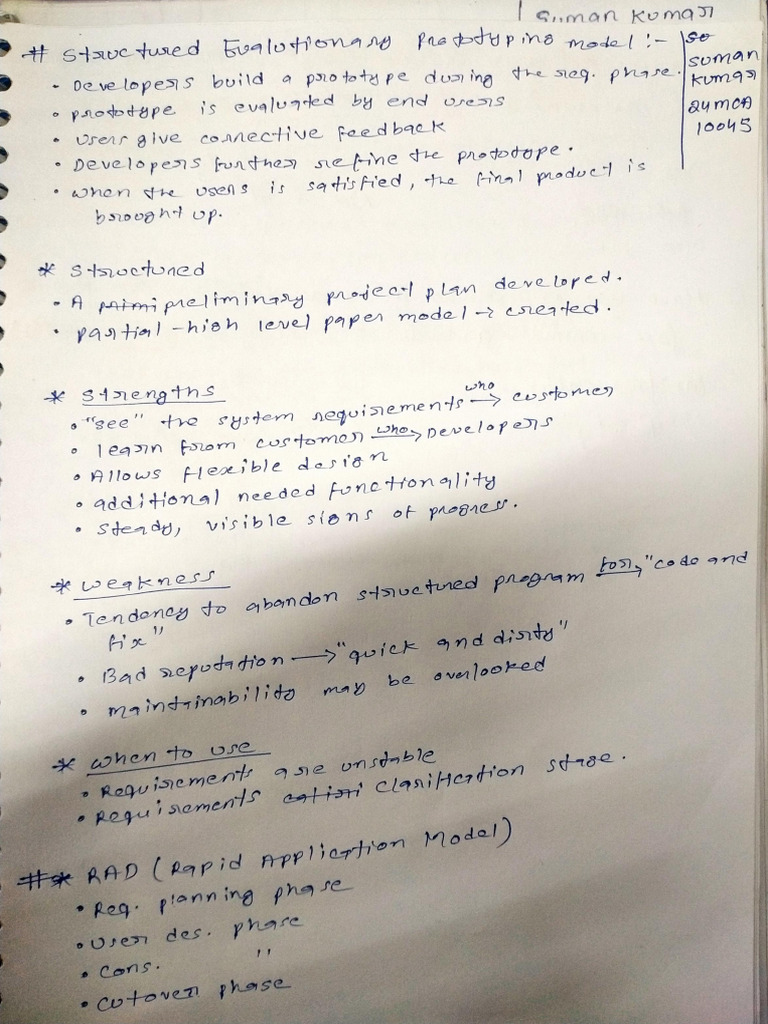 Suman Kumar
# Structured Evalutionary Prototyping model :-
so
suman
kumar
24MCA
10045
• Developers build a prototype during the req. phase.
• prototype is evaluated by end users
• users give corrective feedback
• Developers further refine the prototype.
• when the users is satisfied, the final product is
brought up.
* Structured
• A primi preliminary project plan developed.
• partial-high level paper model → created.
* Strengths
• "see" the system requirements who → customer
• learn from customer who → Developers
• Allows flexible design
• additional needed functionality
• steady, visible signs of progress.
* Weakness
• Tendency to abandon structured program for → "code and
fix"
• Bad reputation → "quick and dirty"
• maintainability may be overlooked
* When to use
• Requirements are unstable
• Requirements clarification stage.
#* RAD (Rapid Application Model)
• Req. planning phase
• User des. phase
• Cons. "
• Cutover phase